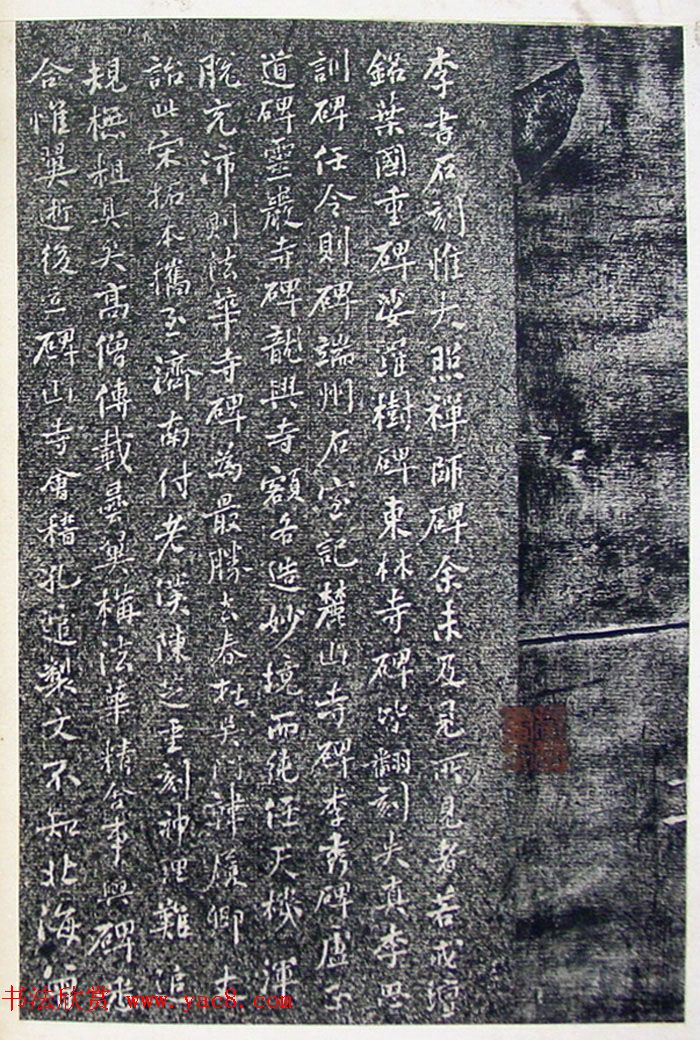 李書石刻惟大照禪師碑余未及見所見者若戒壇
銘葉國重碑娑羅樹碑東林寺碑皆翻刻失真李思
訓碑任令則碑端州石室記麓山寺碑李秀碑盧正
道碑靈巖寺碑龍興寺額各造妙境而純任天機渾
脫充沛則法華寺碑為最勝去春在吳門韓履卿丈
詒此宋拓本攜至濟南付老漢陳芝重刻神理難追
規橅粗具矣高僧傳載曇翼構法華精舍事與碑悉
合惟翼逝後立碑山寺會稽孔逭製文不知北海何
书法欣赏 www.yac8.com